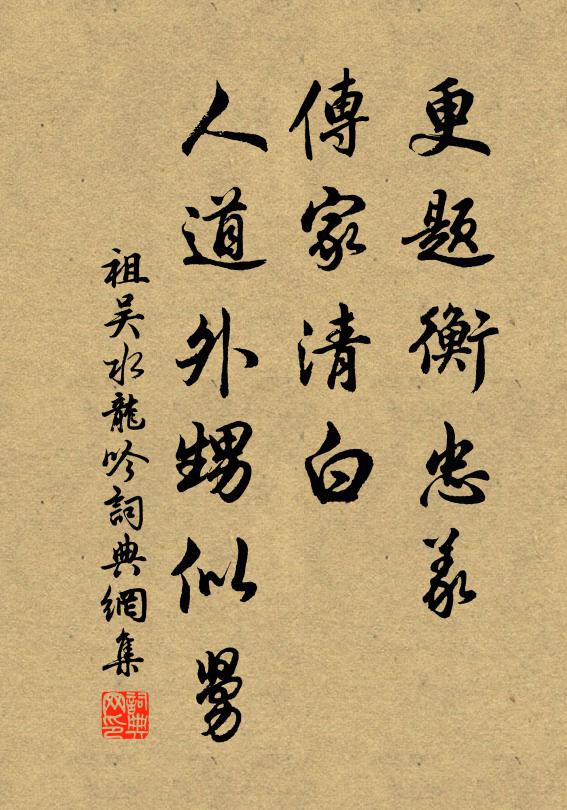 更題衡忠義
傳家清白
人道外甥似舅
祖吴水龍吟詞典網集
詞典网印